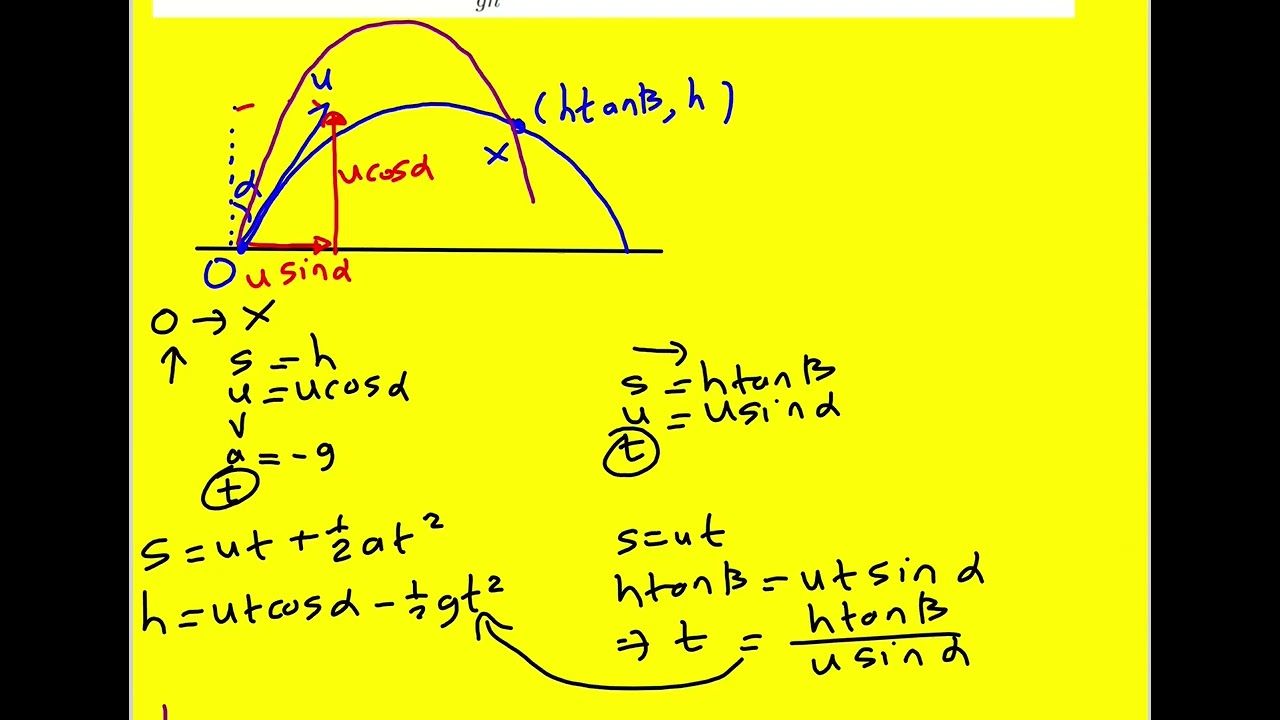 gh
u
(htanβ, h)
α
ucosα
x
O
usinα
O → X
↑
s = h
u = ucosα
v
a = -g
t
→
s = htanβ
u = usinα
t
s = ut + ½at²
h = utcosα - ½gt²
s = ut
htanβ = utsinα
⇒ t = htanβ / usinα